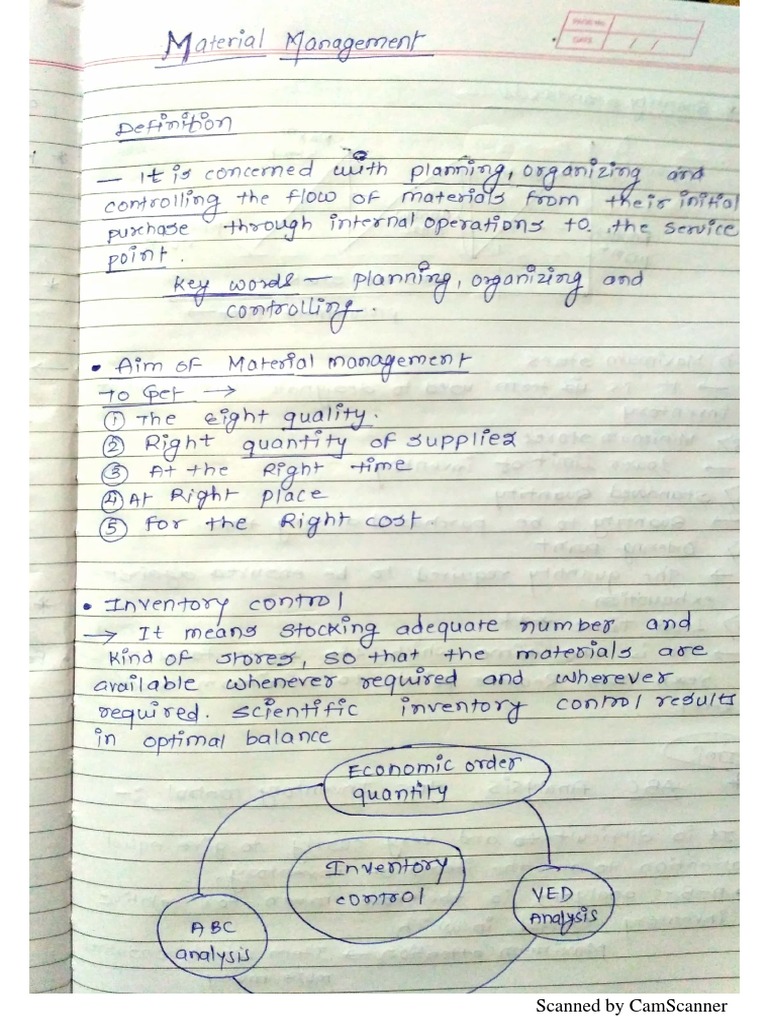 Material Management
PAGE NO.
DATE / /
Definition
— It is concerned with planning, organizing and
controlling the flow of materials from their initial
purchase through internal operations to the service
point.
Key words — planning, organizing and
controlling.
• Aim of Material management
To Get →
① The eight quality.
② Right quantity of supplies
③ At the Right time
④ At Right place
⑤ for the Right cost.
• Inventory control
→ It means stocking adequate number and
kind of stores, so that the materials are
available whenever required and wherever
required. scientific inventory control results
in optimal balance
Economic order
quantity
Inventory
control
VED
Analysis
ABC
analysis
Scanned by CamScanner